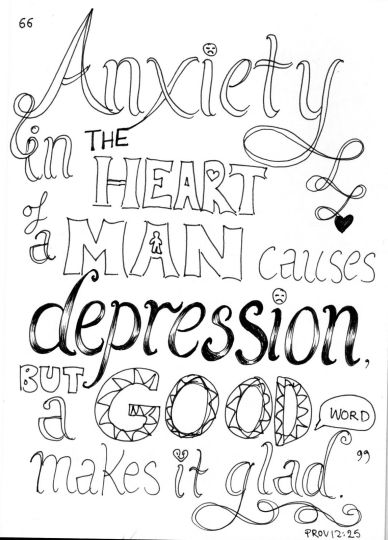 “
Anxiety
in THE
HEART
of a MAN causes
depression,
BUT
a GOOD WORD
makes it glad.”
PROV 12:25